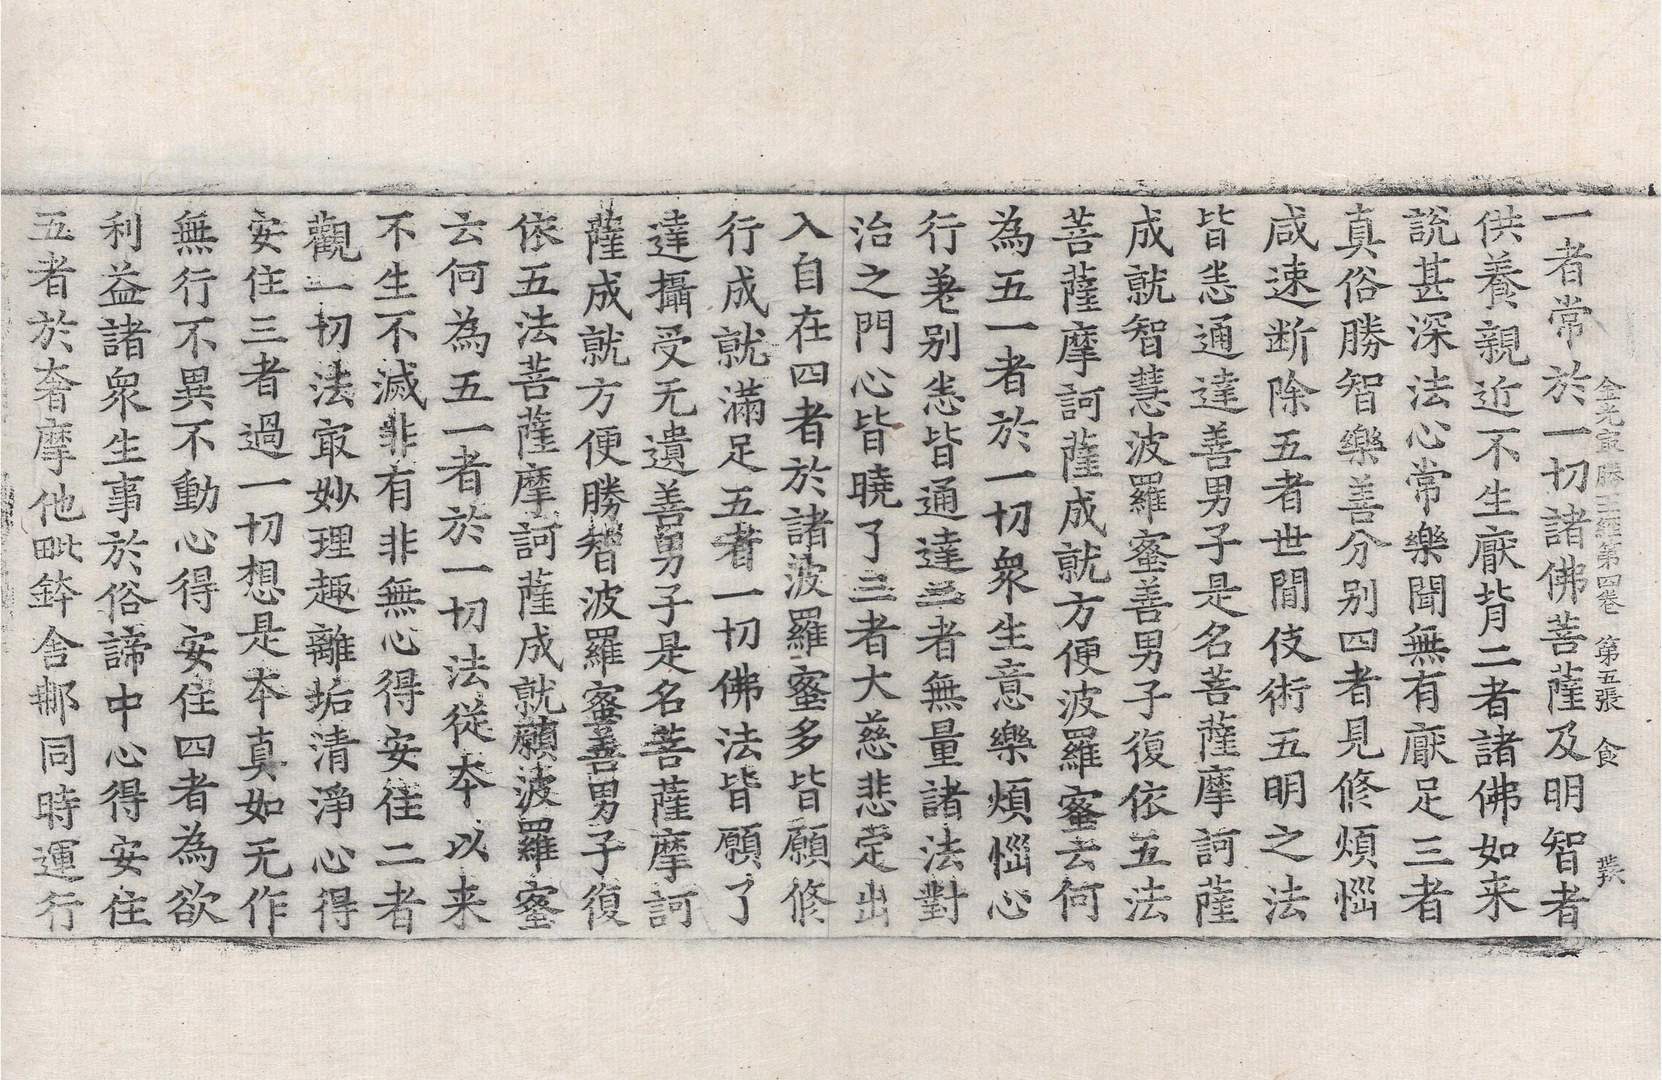 金光㝡勝王經第四卷 第五張 食
一者常於一切諸佛菩薩及明智者
供養親近不生厭背二者諸佛如来
說甚深法心常樂聞無有厭足三者
真俗勝智樂善分别四者見修煩惱
咸速断除五者世間伎術五明之法
皆悉通達善男子是名菩薩摩訶薩
成就智慧波羅蜜善男子復依五法
菩薩摩訶薩成就方便波羅蜜云何
為五一者於一切衆生意樂煩惱心
行差别悉皆通達二者無量諸法對
治之門心皆曉了三者大慈悲定出
入自在四者於諸波羅蜜多皆願修
行成就滿足五者一切佛法皆願了
達攝受无遺善男子是名菩薩摩訶
薩成就方便勝智波羅蜜善男子復
依五法菩薩摩訶薩成就願波羅蜜
云何為五一者於一切法従夲以来
不生不滅非有非無心得安住二者
觀一切法㝡妙理趣離垢清淨心得
安住三者過一切想是夲真如无作
無行不異不動心得安住四者為欲
利益諸衆生事於俗諦中心得安住
五者於奢摩他毗鉢舍那同時運行